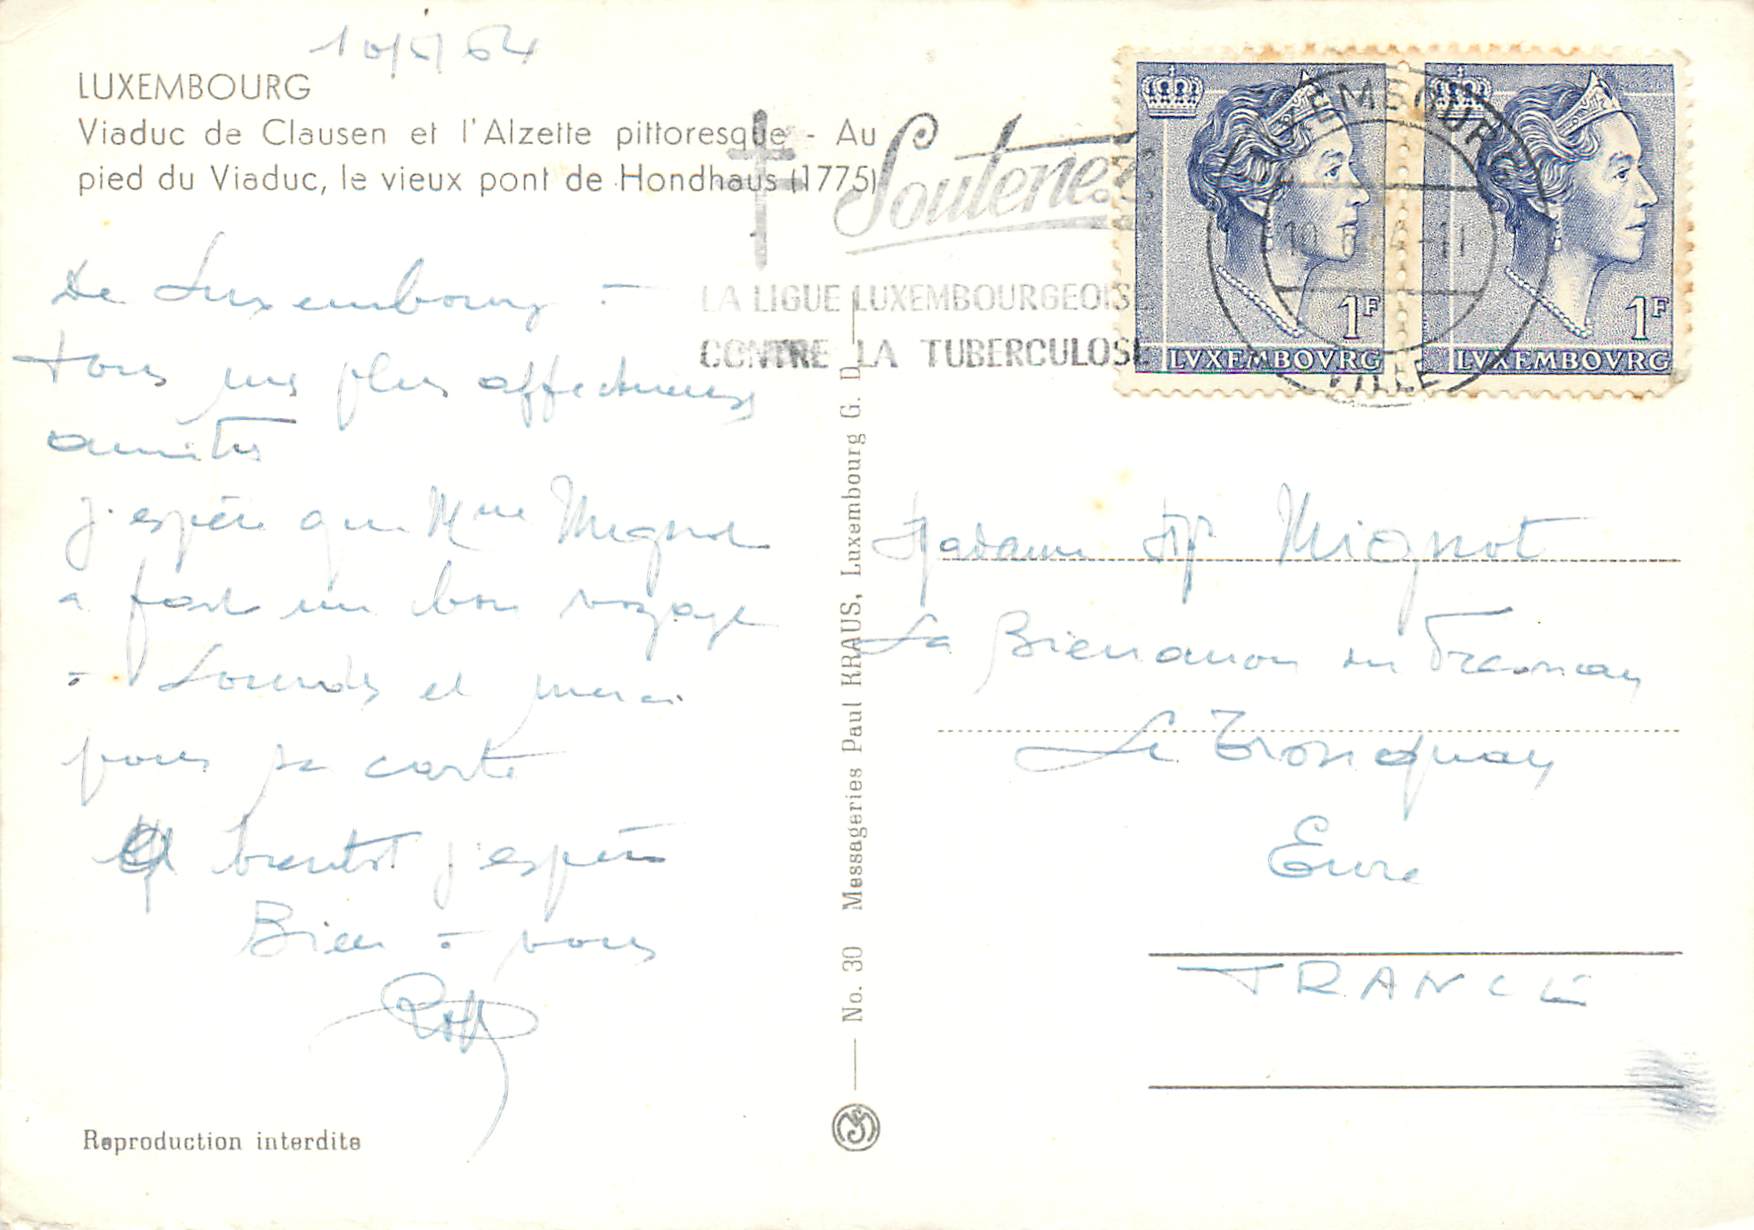 10/5/64
LUXEMBOURG
Viaduc de Clausen et l'Alzette pittoresque - Au
pied du Viaduc, le vieux pont de Hondhaus (1775)
Soutenez
LA LIGUE LUXEMBOURGEOISE
CONTRE LA TUBERCULOSE
LUXEMBOURG
VILLE
1F
LVXEMBOVRG
1F
LVXEMBOVRG
De Luxembourg -
tous mes plus affectueuses
amitiés
J'espère que Mme Mignot
a fait un bon voyage
à Lourdes et merci
pour sa carte
A bientôt j'espère
Bien à vous
No. 30 Messageries Paul KRAUS, Luxembourg G. D.
Madame Mignot
La Bienanon en Fresnay
Le Tronquay
Eure
FRANCE
Reproduction interdite